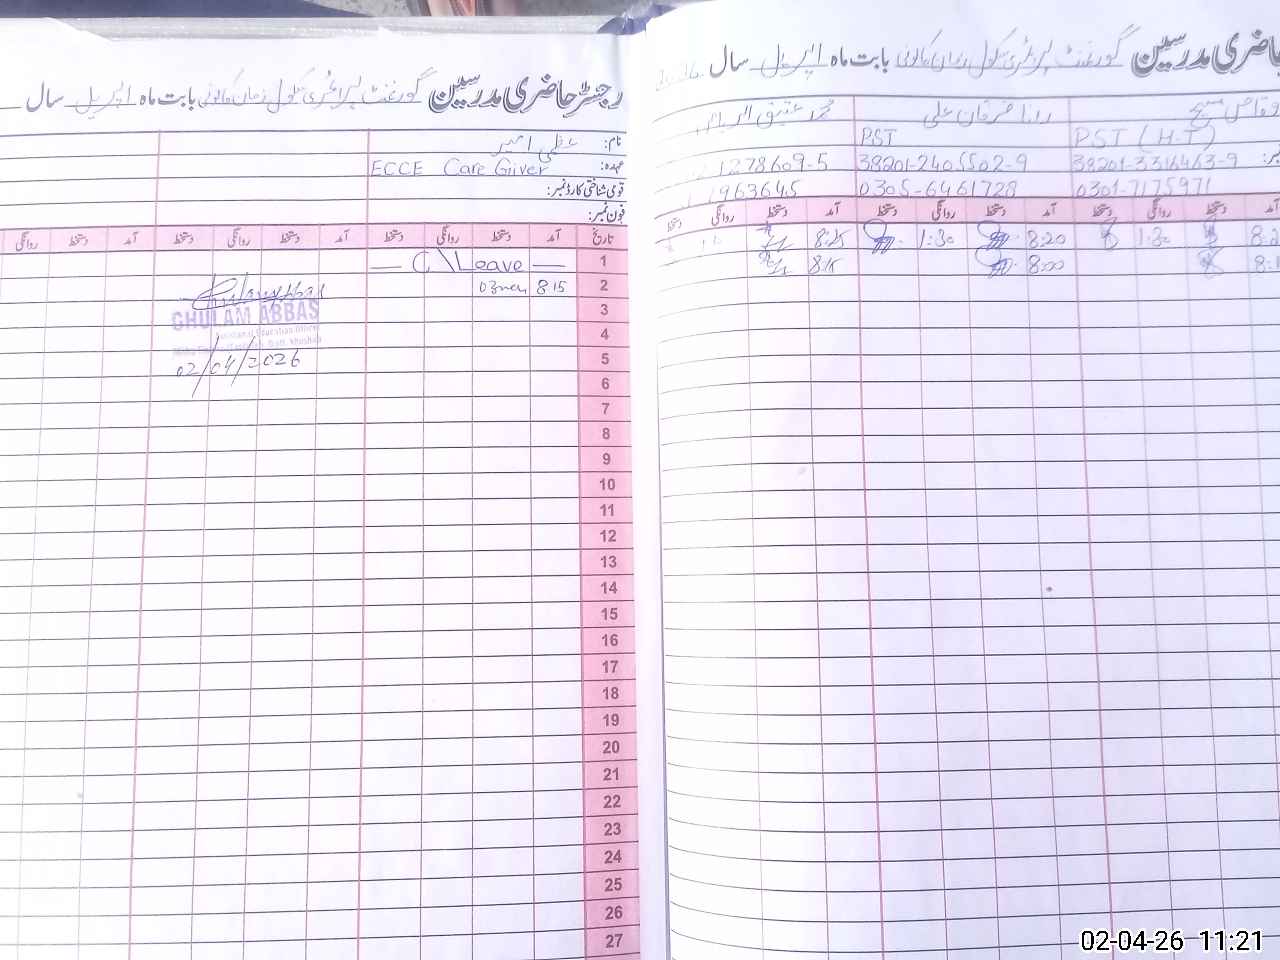 حاضری مدرسین گورنمنٹ پرائمری سکول زمان کالونی بابت ماہ اپریل سال
محمد عتیق الرحمان رانا فرقان علی وقاص مسیح
PST PST (H.T)
1278609-5 38201-2405502-9 38201-3316463-9
963645 0305-6461728 0301-7175971
آمد دستخط روانگی دستخط آمد دستخط روانگی دستخط آمد دستخط روانگی دستخط
8:20 1:30 8:25
1:30 8:00 8:15
رجسٹر حاضری مدرسین گورنمنٹ پرائمری سکول زمان کالونی بابت ماہ اپریل سال
نام: عظمی امیر
عہدہ: ECCE Care Giver
قومی شناختی کارڈ نمبر:
فون نمبر:
تاریخ آمد دستخط روانگی دستخط آمد دستخط روانگی دستخط آمد دستخط روانگی
1 — C\Leave —
2 8:15
GHULAM ABBAS
Assistant Education Officer
02/04/2026
3
4
5
6
7
8
9
10
11
12
13
14
15
16
17
18
19
20
21
22
23
24
25
26
27
02-04-26 11:21